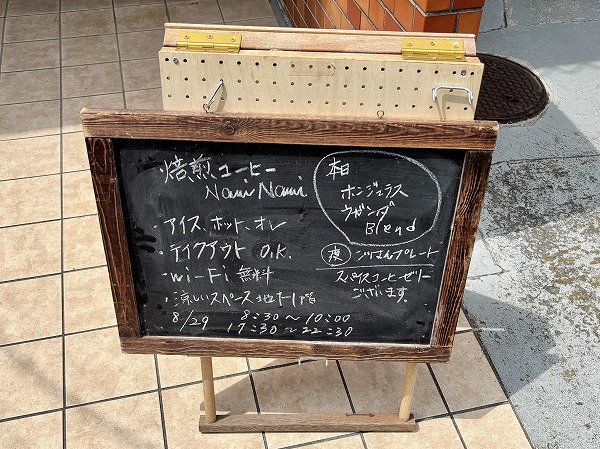 ・焙煎コーヒー
Nami Nami
・アイス、ホット、オレ
・テイクアウト O.K.
・Wi-Fi 無料
・涼しいスペース 地下1階
8/29 8:30〜10:00
17:30〜22:30
本日
ホンジュラス
ウガンダ
Blend
夜 ごはんプレート
スパイスコーヒーゼリー
ございます。